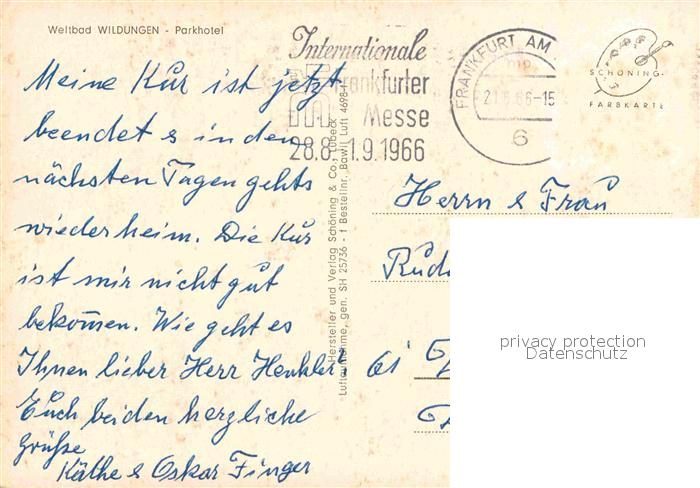 Weltbad WILDUNGEN - Parkhotel
Meine Kur ist jetzt
beendet & in den
nächsten Tagen gehts
wieder heim. Die Kur
ist mir nicht gut
bekom̄en. Wie geht es
Ihnen lieber Herr Henkler?
Euch beiden herzliche
Grüße
Käthe & Oskar Finger
Internationale
Frankfurter
Messe
28.8.-1.9.1966
FRANKFURT AM
6
SCHÖNING-
FARBKARTE
Hersteller und Verlag Schöning & Co., Lübeck
Luftaufnahme, gen. SH 25736 - f Bestellnr. Bawil Luft 4698
Herrn & Frau
Rud
61
privacy protection
Datenschutz